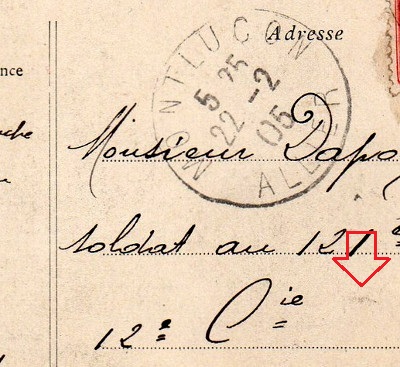 Adresse
MONTLUCON
5 25
22 -2
05
ALLIER
nce
Monsieur Dapo
soldat au 121e
12e Cie